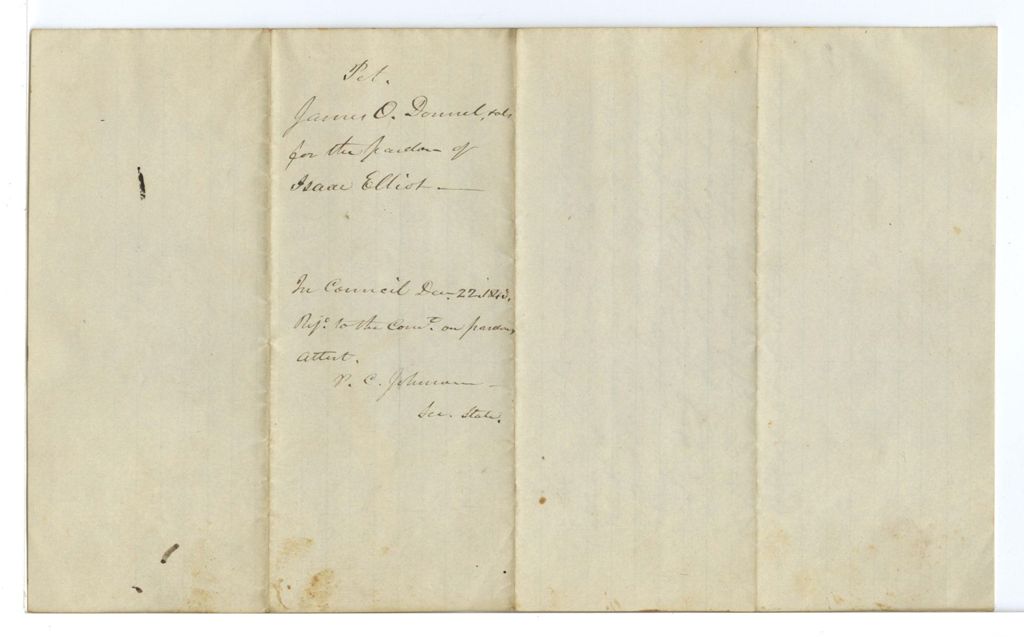 Pet.
James O. Donnel, & als
for the pardon of
Isaac Elliot
In Council Dec. 22. 1843.
Refd. to the Come. on pardons,
Attest.
P. C. Johnson
Sec. State.